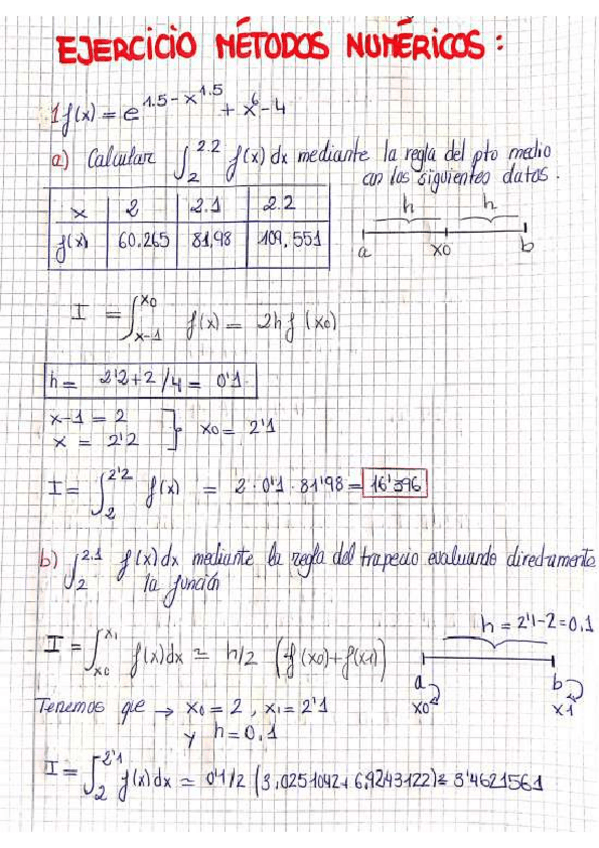 EJERCICIO MÉTODOS NUMÉRICOS:
1 f(x) = e^1.5-x^1.5 + x^6-4
a) Calcular ∫_2^2.2 f(x) dx mediante la regla del pto medio
con los siguientes datos.
x 2 2.1 2.2
f(x) 60.265 81,98 109.551
h h
a x0 b
I = ∫_x-1^x0 f(x) = 2hf (x0)
h = 2'2+2/4 = 0'1
x-1 = 2
x = 2'2 } x0 = 2'1
I = ∫_2^2'2 f(x) = 2·0'1·81'98 = 16'396
b) ∫_2^2.1 f(x)dx mediante la regla del trapecio evaluando directamente
la función
h = 2'1-2=0.1
I = ∫_x0^x1 f(x)dx ≃ h/2 (f(x0)+f(x1))
a b
x0 x1
Tenemos que → x0 = 2, x1 = 2'1
y h=0,1
I = ∫_2^2'1 f(x)dx ≃ 0'1/2 (3,0251042+6,9243122)≃ 3'4621561